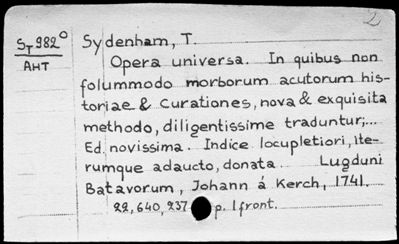 2
S_T 982° Sydenham, T.
AHT Opera universa. In quibus non
folummodo morborum acutorum his-
toriae & Curationes, nova & exquisita
methodo, diligentissime traduntur;...
Ed. novissima. Indice locupletiori, ite-
rumque adaucto, donata. Lugduni
Batavorum, Johann á Kerch, 1741.
22, 640, 237 p. 1 front.